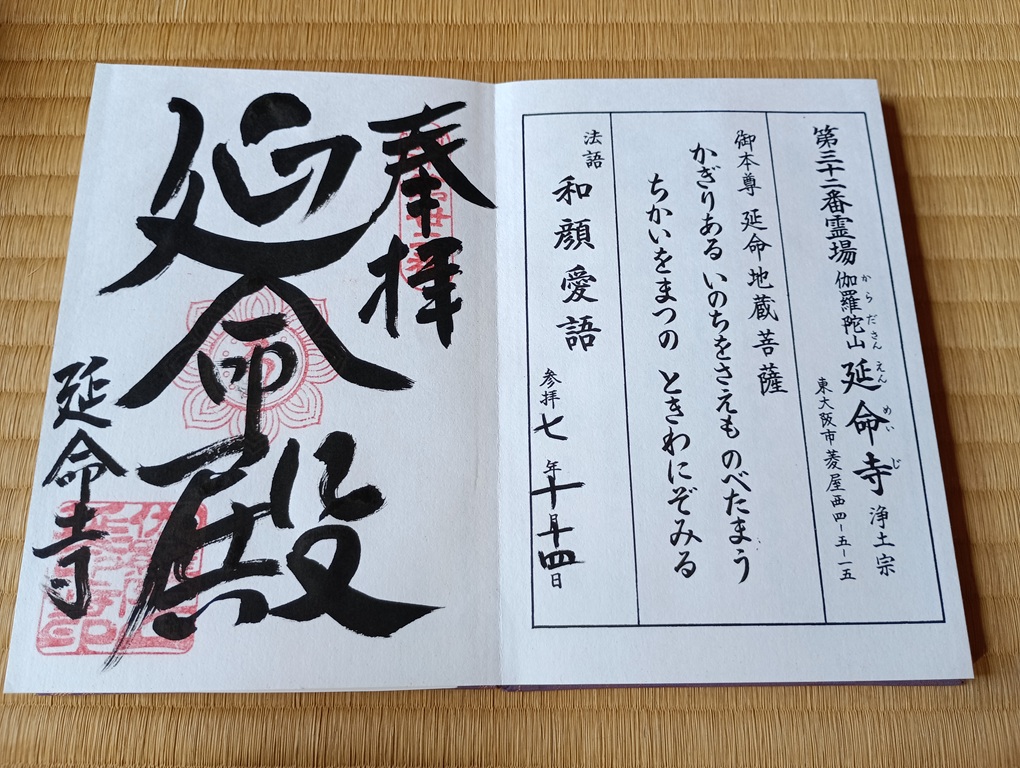 第三十二番霊場 伽羅陀山 延命寺 浄土宗
からださん えんめいじ
東大阪市菱屋西四-五-一五
御本尊 延命地蔵菩薩
かぎりある いのちをさえも のべたまう
ちかいをまつの ときわにぞみる
法語 和顔愛語
参拝 七年十月十四日
奉拝
延命殿
延命寺